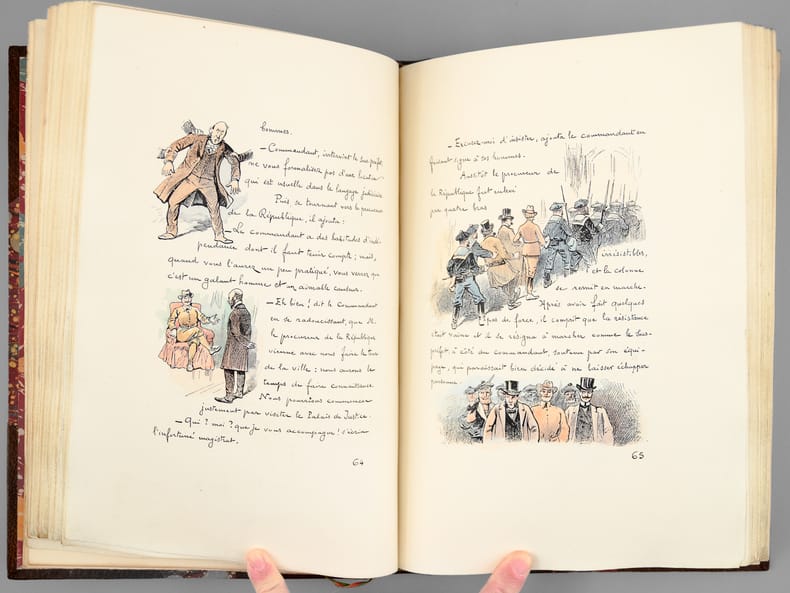 hommes.
— Commandant, interrivint le Sous-préfet,
ne vous formalisez pas d'une locution
qui est usuelle dans le langage judiciaire
Puis se tournant vers le procureur
de la République, il ajouta :
— Le commandant a des habitudes d'indé-
pendance dont il faut tenir compte ; mais,
quand vous l'aurez un peu pratiqué, vous verrez que
c'est un galant homme et un aimable causeur.
— Eh bien ! dit le Commandant
en se radoucissant, que M.
le procureur de la République
vienne avec nous faire le tour
de la ville : nous aurons le
temps de faire connaissance.
Nous pourrions commencer
justement par visiter le Palais de Justice.
— Qui ? moi ? que je vous accompagne ! s'écria
l'infortuné magistrat.
64
— Excusez-moi d'insister, ajouta le commandant en
faisant signe à ses hommes.
Aussitôt le procureur de
la République fut enlevé
par quatre bras
irrésistibles,
et la colonne
se remit en marche.
Après avoir fait quelques
pas de force, il comprit que la résistance
était vaine et il se résigna à marcher comme le Sous-
préfet, à côté du commandant, soutenu par son équi-
page, qui paraissait bien décidé à ne laisser échapper
personne.
65